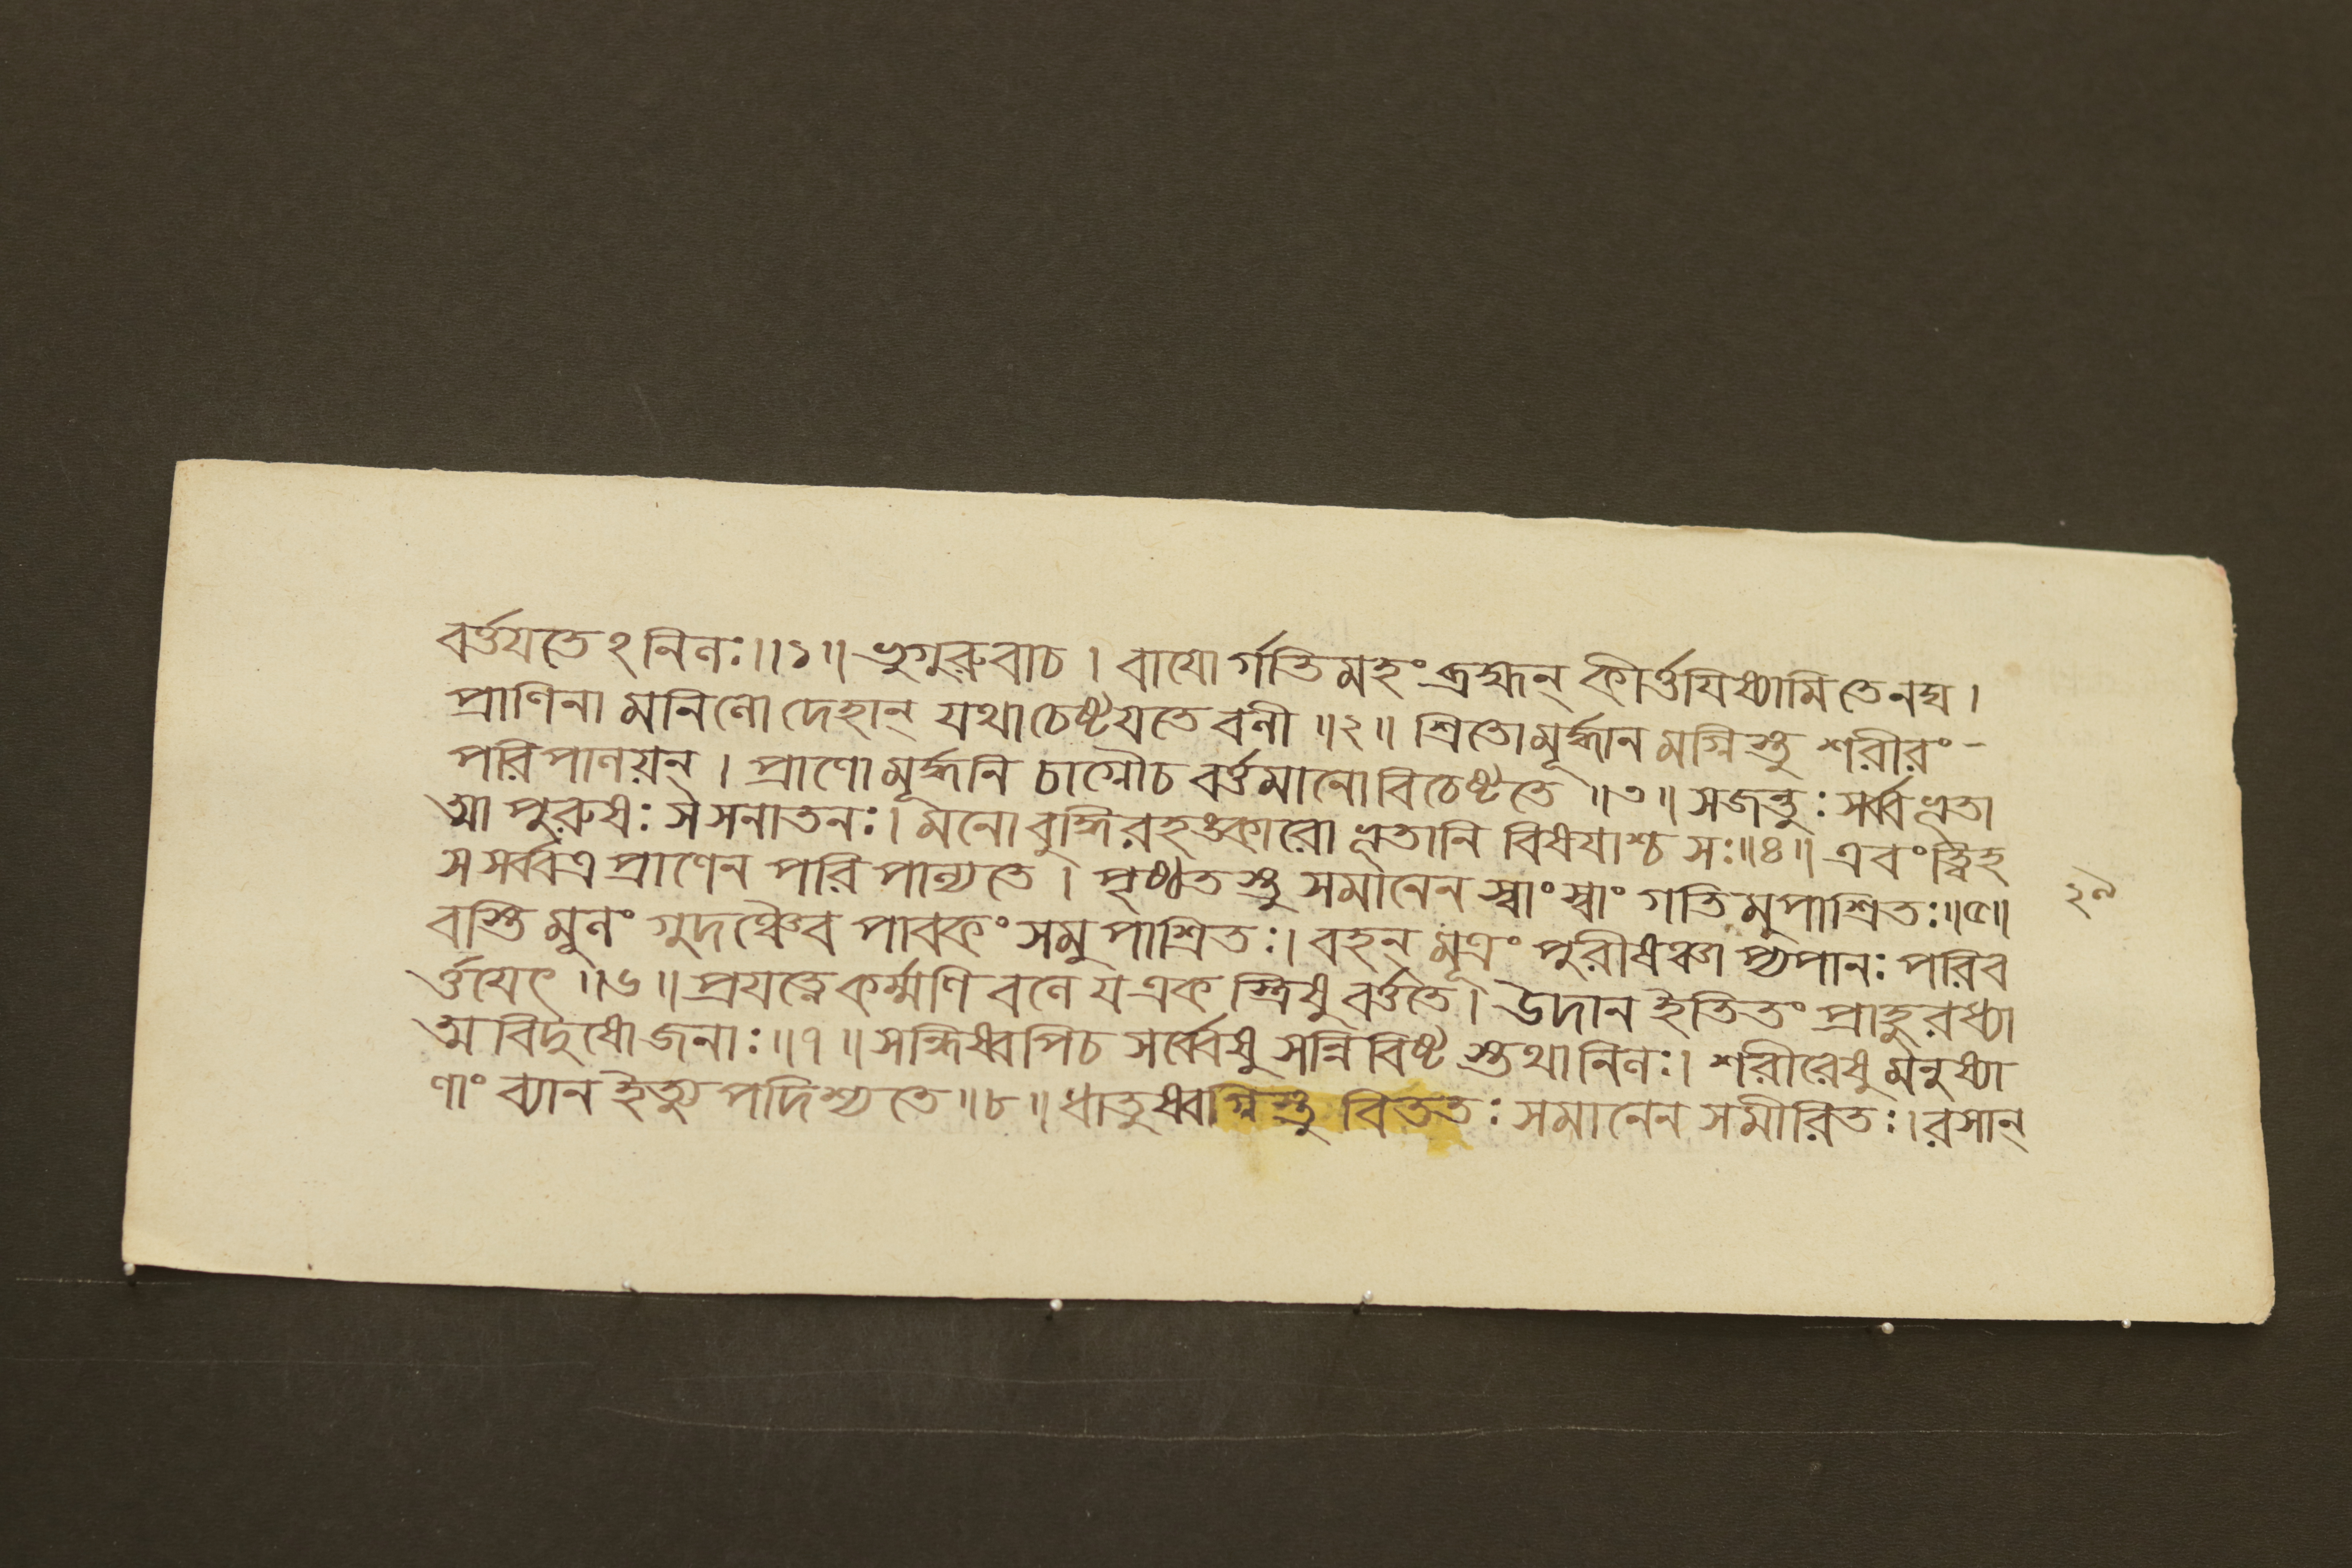 বর্ত্তযতেঽনিলঃ॥১॥ ভৃগুরুবাচ । বাযোর্গতিমহং ব্রহ্মন্ কীর্ত্তযিষ্যামি তেনঘ ।
প্রাণিনামনিলো দেহান্ যথা চেষ্টযতে বলী ॥২॥ শ্রিতো মূর্দ্ধানমগ্নিস্তু শরীরং-
পরিপালয়ন্ । প্রাণো মূর্দ্ধনি চাগ্নৌ চ বর্ত্তমানো বিচেষ্টতে ॥৩॥ সজন্তুঃ সর্ব্বভূতা
ত্মা পুরুষঃ স সনাতনঃ। মনো বুদ্ধিরহঙ্কারো ভূতানি বিষযাশ্চ সঃ॥৪॥ এবং ত্বিহ
স সর্ব্বত্র প্রাণেন পরিপাল্যতে । পৃষ্ঠতস্তু সমানেন স্বাং স্বাং গতিমুপাশ্রিতঃ॥৫॥
২৯
বস্তিমূলং গুদঞ্চৈব পাবকং সমুপাশ্রিতঃ। বহন্ মূত্রং পুরীষঞ্চাপ্যপানঃ পরিব
র্ত্তযেৎ ॥৬॥ প্রযত্নে কর্ম্মণি বলে য একস্ত্রিষু বর্ত্ততে। উদান ইতি তং প্রাহুরধ্যা
ত্মবিদুষো জনাঃ॥৭॥ সন্ধিষ্বপি চ সর্ব্বেষু সন্নিবিষ্টস্তথানিলঃ। শরীরেষু মনুষ্যা
ণাং ব্যান ইত্যুপদিশ্যতে॥৮॥ ধাতুষ্বগ্নিস্তু বিততঃ সমানেন সমীরিতঃ। রসান্